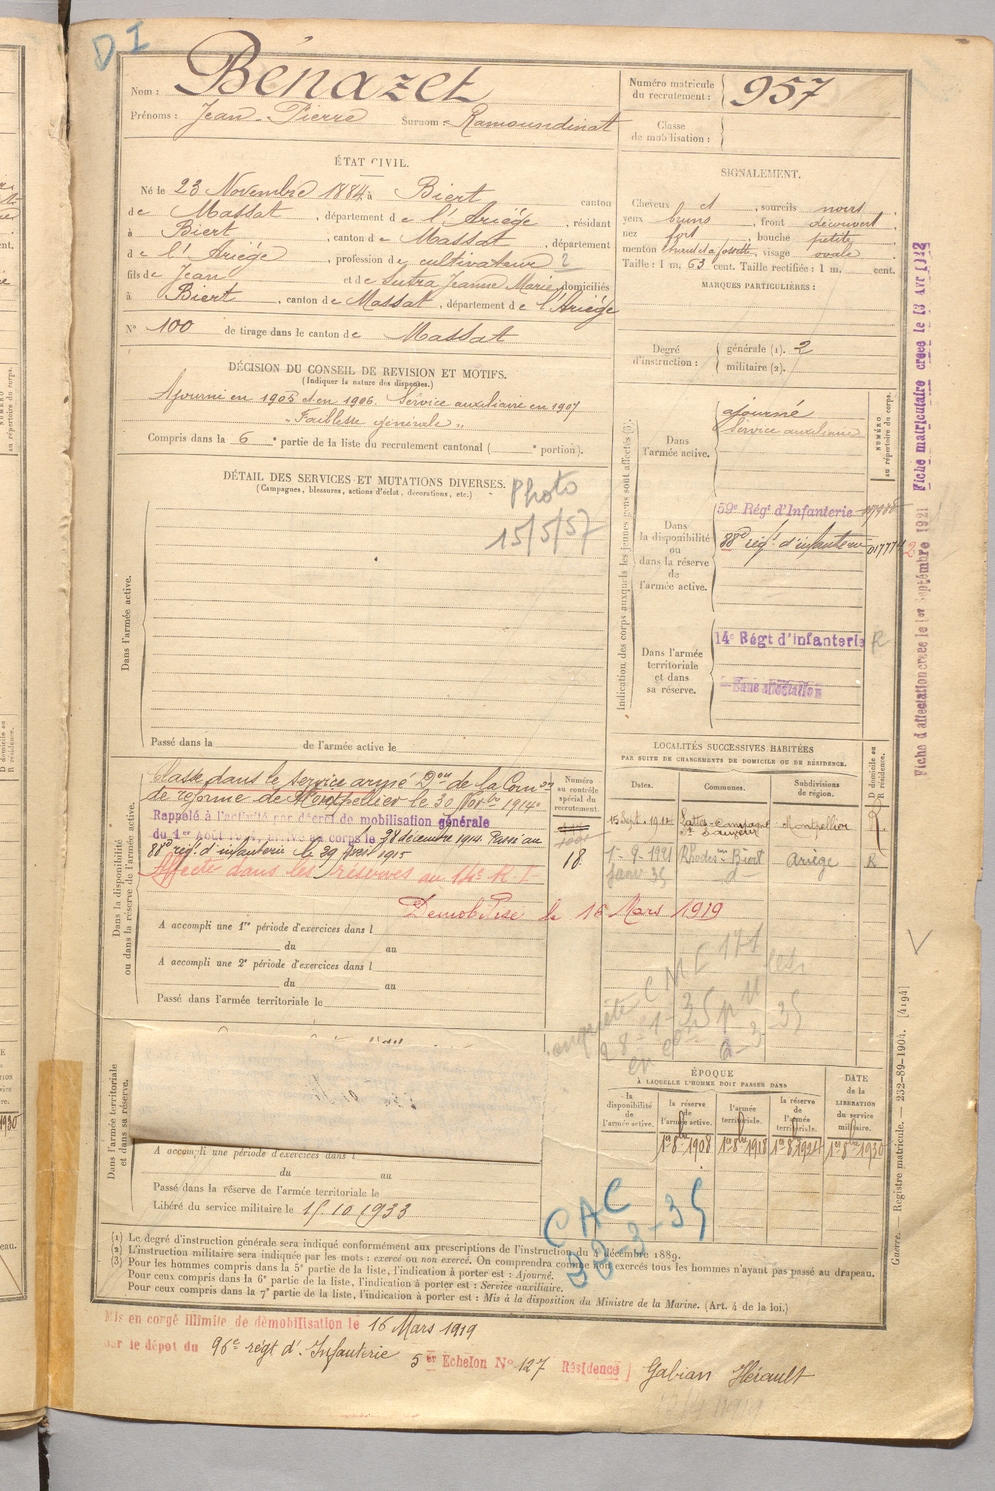 D I
Nom : Bénazet
Prénoms : Jean-Pierre Surnom : Ramoundinat
Numéro matricule du recrutement : 957
Classe de mobilisation :
ÉTAT CIVIL.
Né le 23 Novembre 1884, à Biert canton
de Massat, département de l'Ariège, résidant
à Biert, canton de Massat, département
de l'Ariège, profession de cultivateur 2
fils de Jean et de Sutra Jeanne Marie, domiciliés
à Biert, canton de Massat, département de l'Ariège
N° 100 de tirage dans le canton de Massat
SIGNALEMENT.
Cheveux et, sourcils noirs,
yeux bruns, front découvert,
nez fort, bouche petite,
menton rond à fossette, visage ovale
Taille : 1 m. 63 cent. Taille rectifiée : 1 m. cent.
MARQUES PARTICULIÈRES :
Degré d'instruction : générale (1). 2
militaire (2).
DÉCISION DU CONSEIL DE REVISION ET MOTIFS.
(Indiquer la nature des dispenses.)
Ajourné en 1905 et en 1906. Service auxiliaire en 1907
"Faiblesse générale"
Compris dans la 6e partie de la liste du recrutement cantonal ( e portion).
DÉTAIL DES SERVICES ET MUTATIONS DIVERSES.
(Campagnes, blessures, actions d'éclat, décorations, etc.)
Photo
15/5/57
Dans l'armée active.
Passé dans la de l'armée active le
Indication des corps auxquels les jeunes gens sont affectés (3).
NUMÉRO au répertoire du corps.
Dans l'armée active.
ajourné
Service auxiliaire
Dans la disponibilité ou dans la réserve de l'armée active.
59e Régt d'Infanterie
88e régt d'infanterie
Dans l'armée territoriale et dans sa réserve.
14e Régt d'infanterie R
Sans affectation
Fiche d'affectation créée le 1er Septembre 1921 Fiche matriculaire créée le 13 Avr 1922
LOCALITÉS SUCCESSIVES HABITÉES
PAR SUITE DE CHANGEMENTS DE DOMICILE OU DE RÉSIDENCE.
Numéro au contrôle spécial du recrutement.
Dates. Communes. Subdivisions de région. D domicile ou R résidence.
15 Sept. 1912 Lattes-Campagne St Sauveur Montpellier R
18 1-9-1921 Biert Ariège R
Janv 35 d°
Dans la disponibilité ou dans la réserve de l'armée active.
Classé dans le service armé Don de la Comon
de réforme de Montpellier le 30 Novbre 1914
Rappelé à l'activité par décret de mobilisation générale
du 1er Août 1914, arrivé au corps le 28 décembre 1914. Passé au
88e rég. d'infanterie le 29 Avril 1915
Affecté dans les réserves au 14e R I
Démobilisé le 16 Mars 1919
A accompli une 1re période d'exercices dans l
du au
A accompli une 2e période d'exercices dans l
du au
Passé dans l'armée territoriale le
28-1-35
2-3-35
Dans l'armée territoriale et dans sa réserve.
A accompli une période d'exercices dans l
du au
Passé dans la réserve de l'armée territoriale le
Libéré du service militaire le 15.10.1933
ÉPOQUE
À LAQUELLE L'HOMME DOIT PASSER DANS
la disponibilité de l'armée active. la réserve de l'armée active. l'armée territoriale. la réserve de l'armée territoriale.
DATE de la LIBÉRATION du service militaire.
1er 8bre 1908 1er 8bre 1918 1er 8bre 1924 1er 8bre 1930
CAC
(1) Le degré d'instruction générale sera indiqué conformément aux prescriptions de l'instruction du 4 décembre 1889.
(2) L'instruction militaire sera indiquée par les mots : exercé ou non exercé. On comprendra comme non exercés tous les hommes n'ayant pas passé au drapeau.
(3) Pour les hommes compris dans la 5e partie de la liste, l'indication à porter est : Ajourné.
Pour ceux compris dans la 6e partie de la liste, l'indication à porter est : Service auxiliaire.
Pour ceux compris dans la 7e partie de la liste, l'indication à porter est : Mis à la disposition du Ministre de la Marine. (Art. 4 de la loi.)
Guerre. — Registre matricule. — 232-89-1904. [4194]
Mis en congé illimité de démobilisation le 16 Mars 1919
par le dépôt du 96e régt d'Infanterie 5er Echelon N° 127 Résidence Gabian Hérault